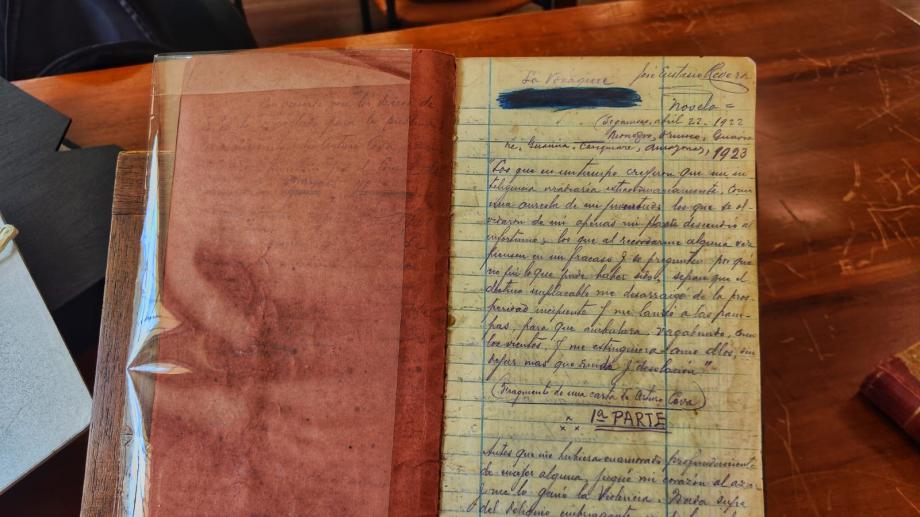 La Vorágine José Eustasio Rivera
Novela =
(Sogamoso, abril 22, 1922
Rionegro, Orinoco, Guavia
re, Guainía, Casiquiare, Amazonas, 1923
"Los que en un tiempo creyeron que mi in
teligencia irradiaría extraordinariamente, como
una aureola de mi juventud; los que se ol
vidaron de mí apenas mi planta descendió al
infortunio; los que al recordarme alguna vez
piensen en mi fracaso y se pregunten por qué
no fuí lo que pude haber sido, sepan que el
destino implacable me desarraigó de la pros
peridad incipiente y me lanzó a las pam
pas, para que ambulara, vagabundo, como
los vientos, y me extinguiera como ellos, sin
dejar mas que ruido y desolación"
(Fragmento de una carta de Arturo Cova)
1ª PARTE
Antes que me hubiera enamorado profundamente
de mujer alguna, jugué mi corazón al azar
y me lo ganó la Violencia. Nada supe
del deliquio embriagante